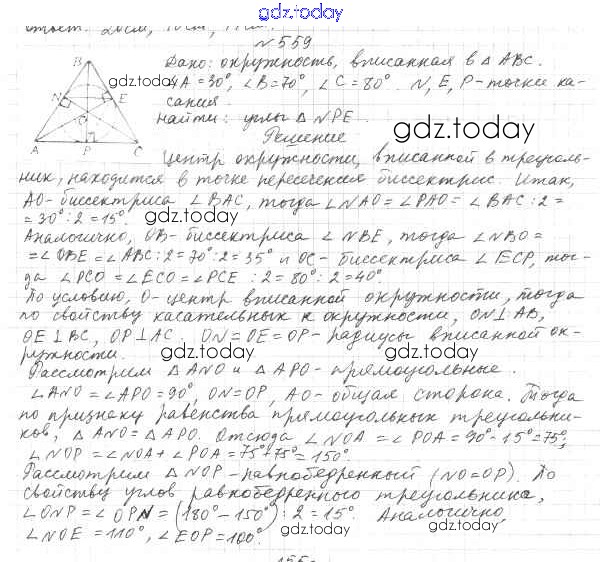 gdz.today
Ответ: 20см, 10см,
№559
Дано: окружность, вписанная в △ ABC.
∠A = 30°, ∠B = 70°, ∠C = 80°. N, E, P - точки ка-
сания
Найти: углы △ NPE.
Решение
B
N
E
O
A
P
C
gdz.today
gdz.today
Центр окружности, вписанной в треуголь-
ник, находится в точке пересечения биссектрис. Итак,
AO - биссектриса ∠ BAC, тогда ∠NAO = ∠PAO = ∠BAC : 2 =
= 30° : 2 = 15°.
gdz.today
Аналогично, OB - биссектриса ∠ NBE, тогда ∠NBO =
= ∠OBE = ∠ABC : 2 = 70° : 2 = 35° и OC - биссектриса ∠ ECP, тог-
да ∠PCO = ∠ECO = ∠PCE : 2 = 80° : 2 = 40°
По условию, O - центр вписанной окружности, тогда
по свойству касательных к окружности, ON⊥AB,
OE⊥BC, OP⊥AC. ON = OE = OP - радиусы вписанной ок-
ружности.
gdz.today
Рассмотрим △ ANO и △ APO - прямоугольные.
∠ANO = ∠APO = 90°, ON = OP, AO - общая сторона. Тогда
по признаку равенства прямоугольных треугольни-
ков, △ ANO = △ APO. Отсюда ∠NOA = ∠POA = 90° - 15° = 75°,
∠NOP = ∠NOA + ∠POA = 75° + 75° = 150°.
gdz.today
Рассмотрим △ NOP - равнобедренный (NO = OP). По
свойству углов равнобедренного треугольника,
∠ONP = ∠OPN = (180° - 150°) : 2 = 15°. Аналогично,
∠NOE = 110°, ∠EOP = 100°.
gdz.today
gdz.today